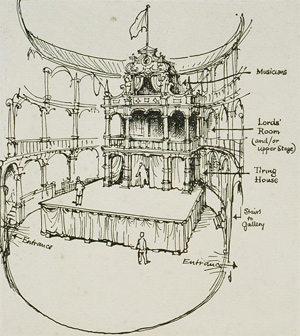 Musicians
Lords'
Room
(and/or
upper Stage)
Tiring
House
Stairs
to
Gallery
Entrance
Entrance